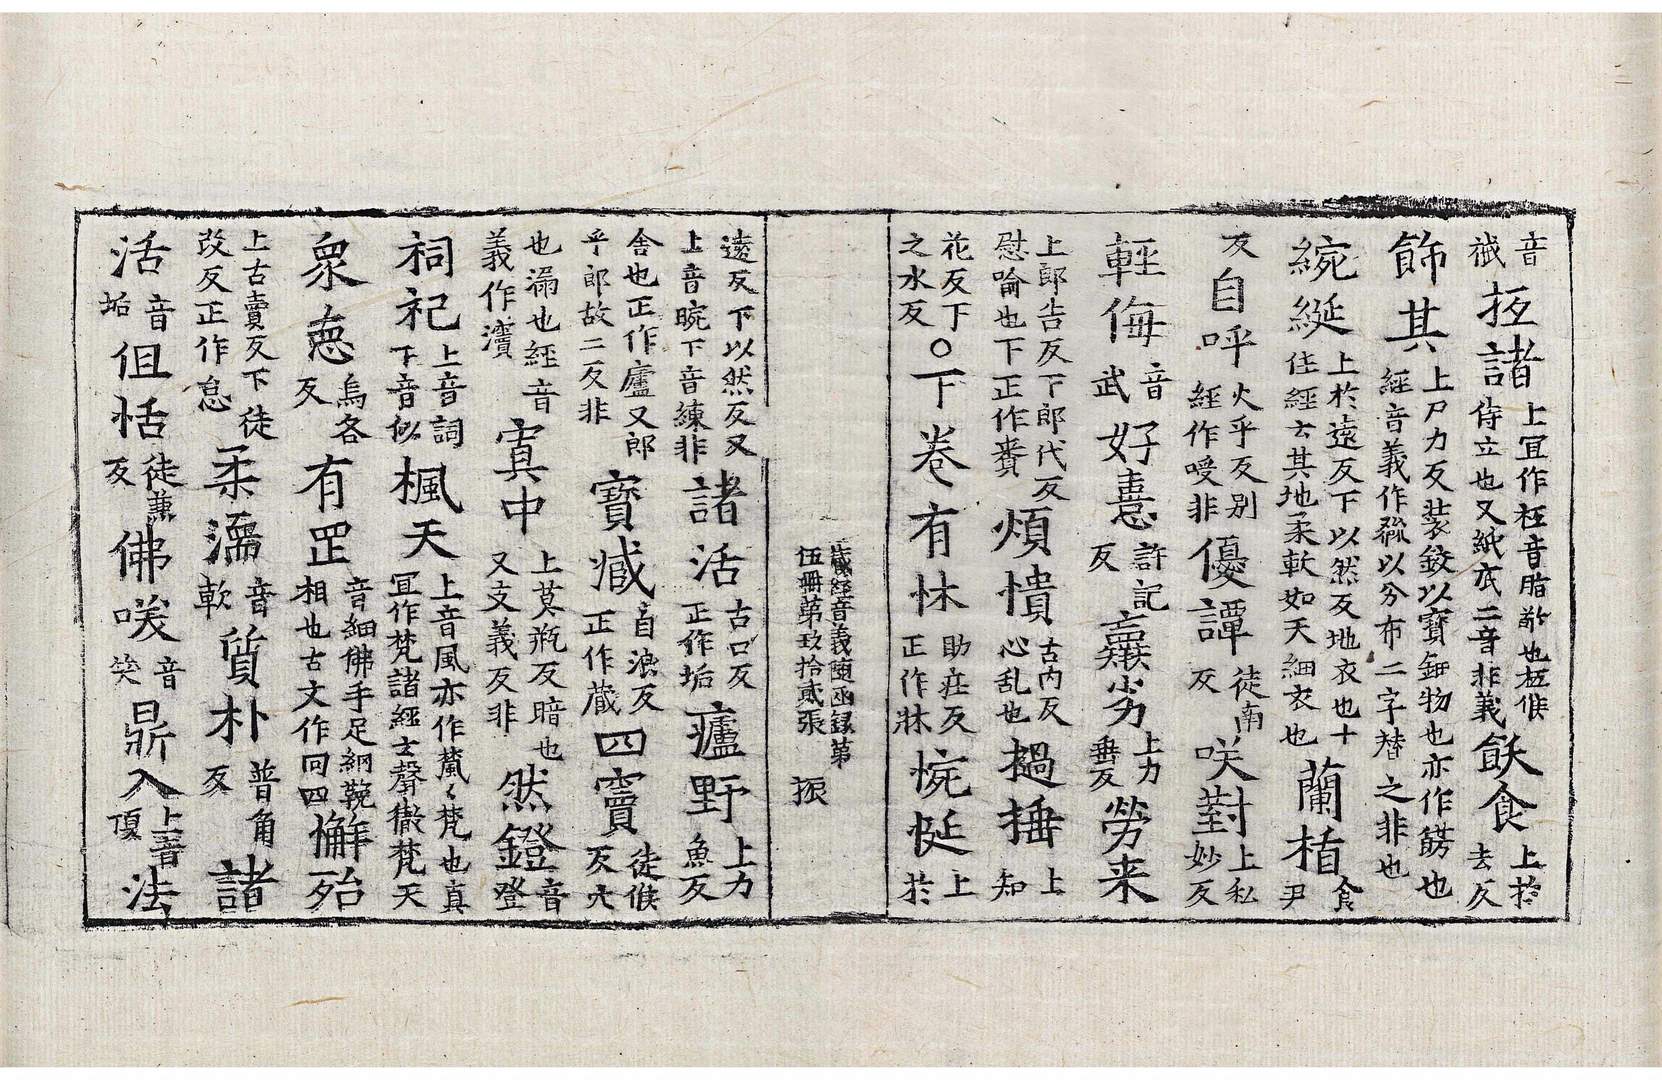 音祴抂諸上宜作衹音脂敬也衹候侍立也又紙底二音非義飫食上於去久
飾其上尸力反装鉸以寳鈿物也亦作餝也經音義作飝以分布二字替之非也
綩綖上於遠反下以然反地衣也十住經云其地柔軟如天細衣也蘭楯食尹
反自呼火乎反別經作嚘非優譚徒南反咲對上私妙反
輕侮音武好憙許記反羸劣上力垂反勞来
上郎告反下郎代反慰喻也下正作賚煩憒古内反心乱也撾捶上知
花反下之水反〇下卷有㹯助庄反正作牀惋綖上於
藏經音義随函録第伍冊第玖拾貳張 振
遠反下以然反又上音腕下音練非諸活古口反正作垢廬野上力魚反
舍也正作廬又郎乎郎故二反非寳臧自浪反正作藏四竇徒候反穴
也漏也經音義作瀆寘中上莫瓶反暗也又支義反非然鐙音登
祠祀上音詞下音似楓天上音風亦作〻梵也真冝作梵諸經云聲徹梵天
衆悳烏各反有罡音細佛手足網鞔相也古文作冏四懈殆
上古賣反下徒改反正作怠柔濡音軟質朴普角反諸
活音垢但恬徒兼反佛咲音笑鼎入上音頂法